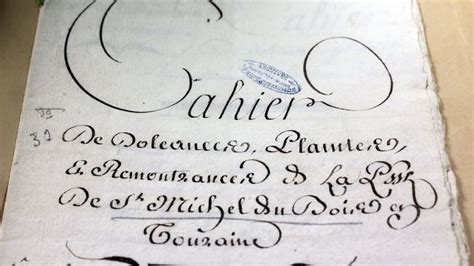 Cahier
De Doleances, Plaintes,
& Remontrances de La Psse
De St. Michel du Bois en
Touraine